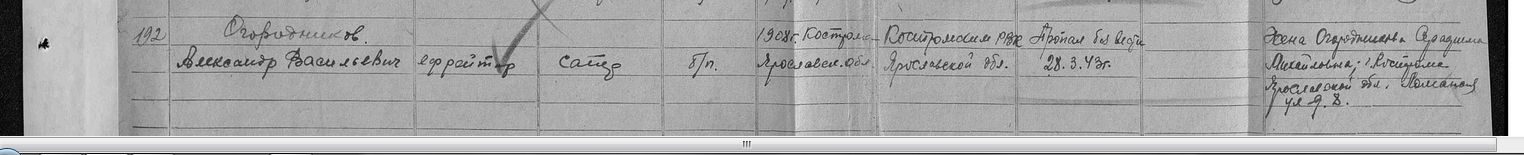 192 Огородников. 1908г. Кострома Костромским РВК Пропал без вести Жена Огородникова Серафима
Александр Васильевич ефрейтор сапер б/п. Ярославск. обл. Ярославской обл. 28.3.43г. Михайловна, г. Кострома
Ярославской обл.
ул д. 8.